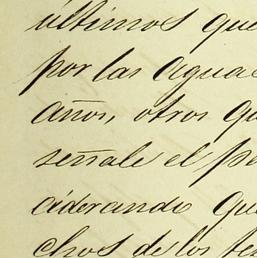 últimos que
por las aguas
años, otros qu
señale el pe
ciderando que
chos de los te